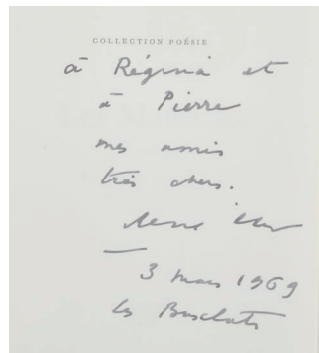 COLLECTION POÉSIE
à Régina et
à Pierre
mes amis
très chers.
René Char
3 mars 1969
Les Busclats